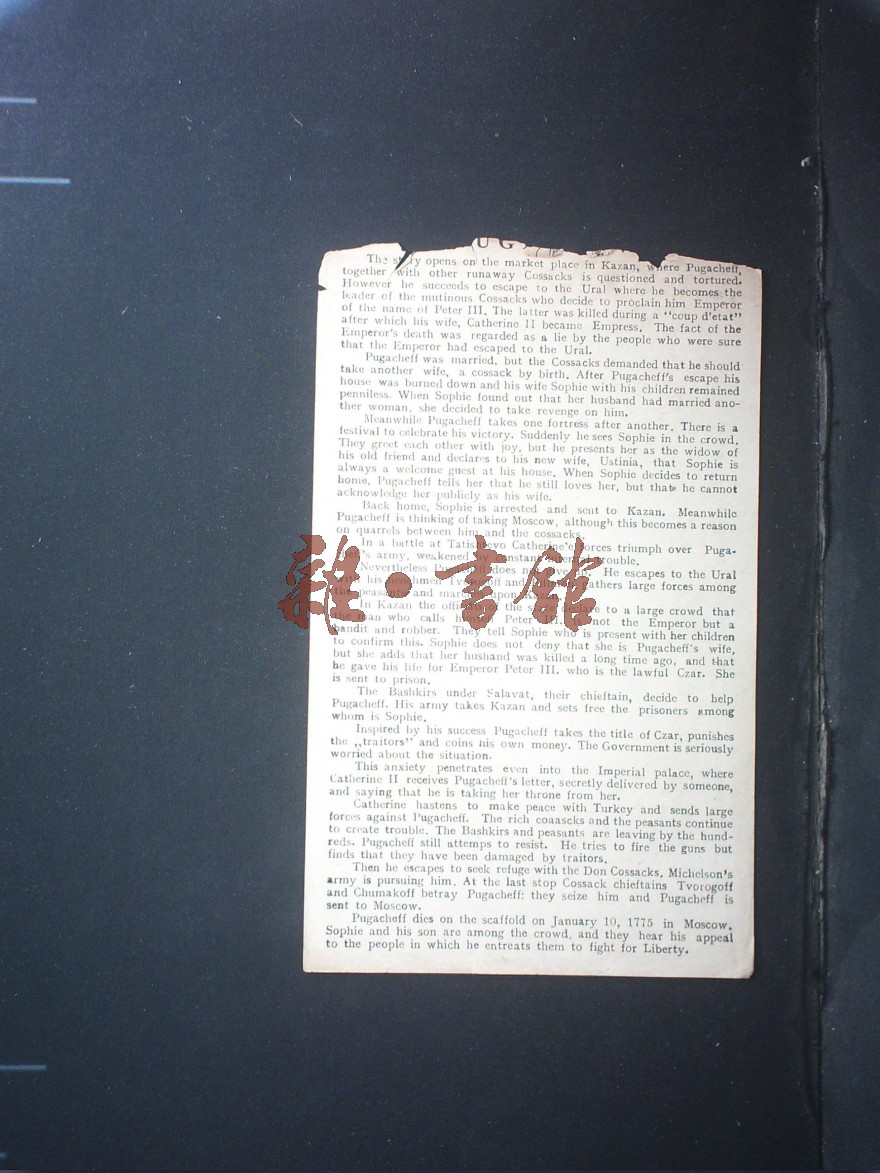 UG
The story opens on the market place in Kazan, where Pugacheff,
together with other runaway Cossacks is questioned and tortured.
However he succeeds to escape to the Ural where he becomes the
leader of the mutinous Cossacks who decide to proclaim him Emperor
of the name of Peter III. The latter was killed during a "coup d'etat"
after which his wife, Catherine II became Empress. The fact of the
Emperor's death was regarded as a lie by the people who were sure
that the Emperor had escaped to the Ural.
Pugacheff was married, but the Cossacks demanded that he should
take another wife, a cossack by birth. After Pugacheff's escape his
house was burned down and his wife Sophie with his children remained
penniless. When Sophie found out that her husband had married ano-
ther woman, she decided to take revenge on him.
Meanwhile Pugacheff takes one fortress after another. There is a
festival to celebrate his victory. Suddenly he sees Sophie in the crowd.
They greet each other with joy, but he presents her as the widow of
his old friend and declares to his new wife, Ustinia, that Sophie is
always a welcome guest at his house. When Sophie decides to return
home, Pugacheff tells her that he still loves her, but that he cannot
acknowledge her publicly as his wife.
Back home, Sophie is arrested and sent to Kazan. Meanwhile
Pugacheff is thinking of taking Moscow, although this becomes a reason
on quarrels between him and the cossacks.
In a battle at Tatishevo Catherine's forces triumph over Puga-
cheff's army, weakened by constant internal trouble.
Nevertheless Pugacheff does not. He escapes to the Ural
with his henchmen Tvorogoff and gathers large forces among
the peasants and marches upon Kazan.
In Kazan the officials of the state declare to a large crowd that
the man who calls himself Peter III. is not the Emperor but a
bandit and robber. They tell Sophie who is present with her children
to confirm this. Sophie does not deny that she is Pugacheff's wife,
but she adds that her husband was killed a long time ago, and that
he gave his life for Emperor Peter III. who is the lawful Czar. She
is sent to prison.
The Bashkirs under Salavat, their chieftain, decide to help
Pugacheff. His army takes Kazan and sets free the prisoners among
whom is Sophie.
Inspired by his success Pugacheff takes the title of Czar, punishes
the „traitors" and coins his own money. The Government is seriously
worried about the situation.
This anxiety penetrates even into the Imperial palace, where
Catherine II receives Pugacheff's letter, secretly delivered by someone,
and saying that he is taking her throne from her.
Catherine hastens to make peace with Turkey and sends large
forces against Pugacheff. The rich coaascks and the peasants continue
to create trouble. The Bashkirs and peasants are leaving by the hund-
reds. Pugacheff still attemps to resist. He tries to fire the guns but
finds that they have been damaged by traitors.
Then he escapes to seek refuge with the Don Cossacks. Michelson's
army is pursuing him. At the last stop Cossack chieftains Tvorogoff
and Chumakoff betray Pugacheff: they seize him and Pugacheff is
sent to Moscow.
Pugacheff dies on the scaffold on January 10, 1775 in Moscow.
Sophie and his son are among the crowd, and they hear his appeal
to the people in which he entreats them to fight for Liberty.
雜·書館